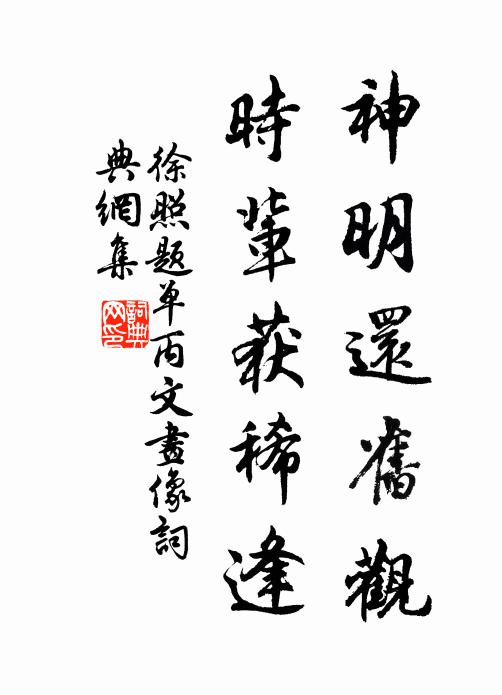 神明還舊觀
時輩获稀逢
徐照题单丙文畫像詞
典網集
詞典網印